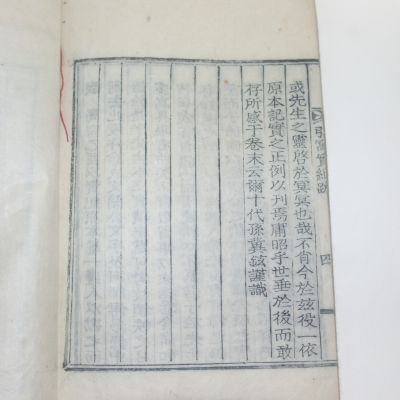 或先生之靈啓於冥冥也哉不肯今於玆役一依
原本記實之正例以刊焉庸昭乎世垂於後而敢
存所感于卷末云爾十代孫冀鉉謹識
四